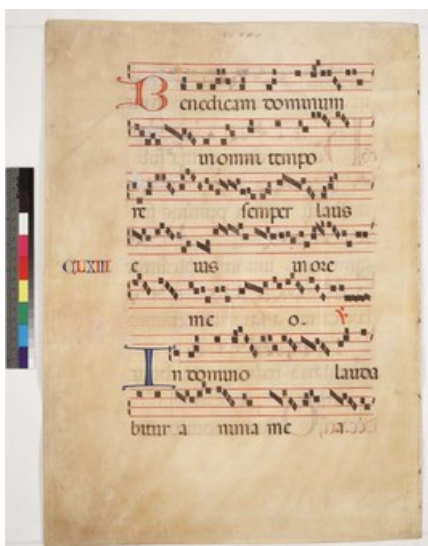 Benedicam dominum
in omni tempo
re semper laus
e ius in ore
CLXIII
me o. V
In domino lauda
bitur a nima me a